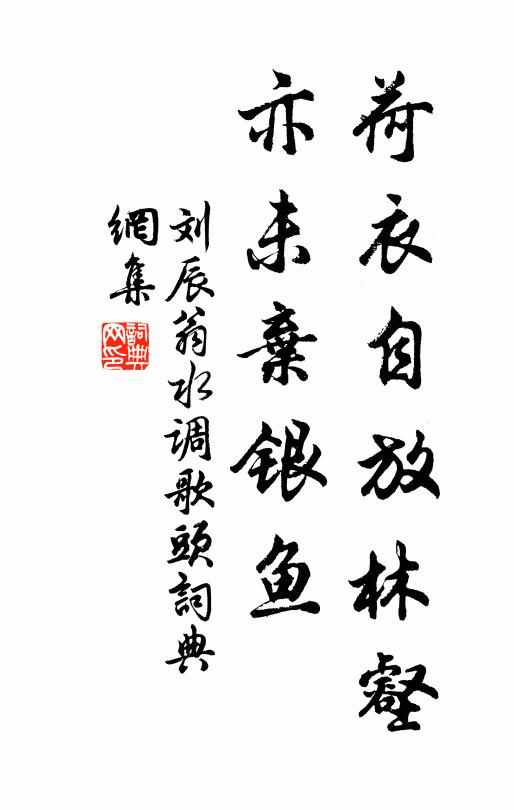 荷衣自放林壑
亦未棄银鱼
刘辰翁水调歌頭詞典
網集
詞典
网印